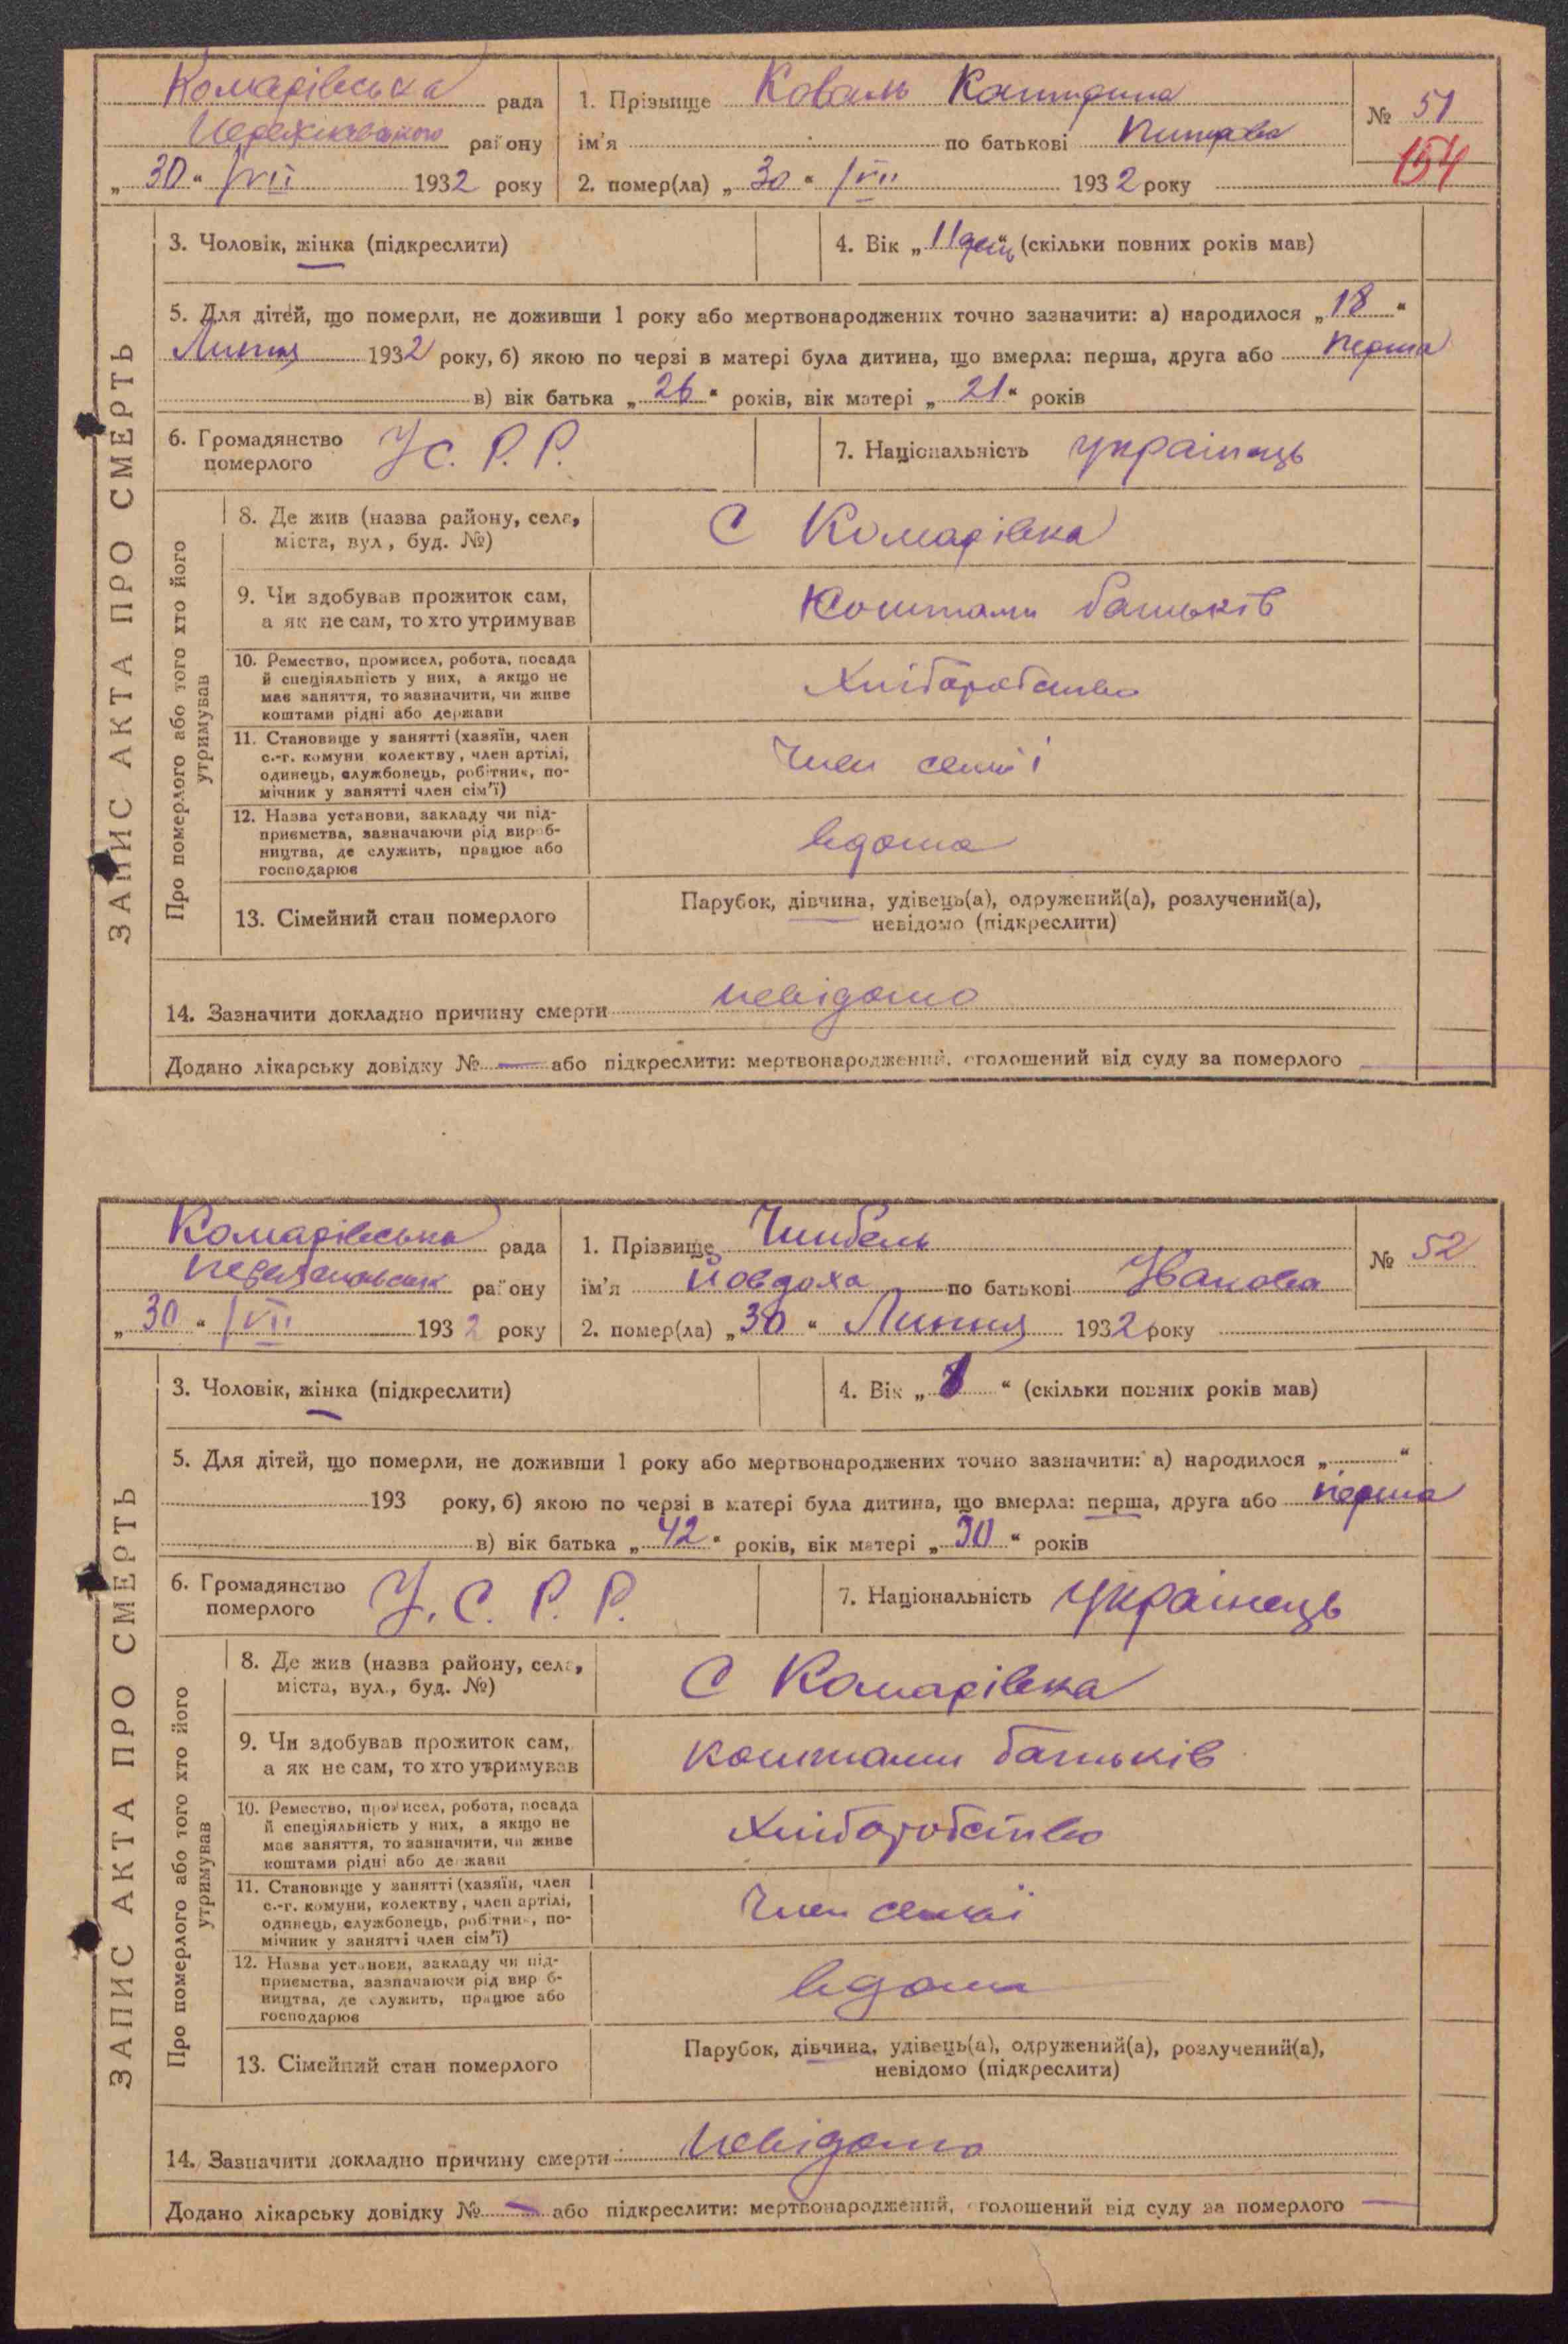 Комарівська рада
району
„30“ /VII 1932 року
1. Прізвище Коваль Катирина
ім'я по батькові
2. помер(ла) „30“ /VII 1932 року
№ 51
154
ЗАПИС АКТА ПРО СМЕРТЬ
3. Чоловік, жінка (підкреслити)
4. Вік „11 день“ (скільки повних років мав)
5. Для дітей, що померли, не доживши 1 року або мертвонароджених точно зазначити: а) народилося „18“
Липня 1932 року, б) якою по черзі в матері була дитина, що вмерла: перша, друга або перша
в) вік батька „26“ років, вік матері „21“ років
6. Громадянство
померлого
У С. Р. Р.
7. Національність українець
Про померлого або того хто його
утримував
8. Де жив (назва району, села,
міста, вул., буд. №)
С Комарівка
9. Чи здобував прожиток сам,
а як не сам, то хто утримував
Коштами батьків
10. Ремество, промисел, робота, посада
й спеціяльність у них, а якщо не
має заняття, то зазначити, чи живе
коштами рідні або держави
Хліборобство
11. Становище у занятті (хазяїн, член
с.-г. комуни колектву, член артілі,
одинець, службовець, робітник, по-
мічник у занятті член сім'ї)
Член семі
12. Назва установи, закладу чи під-
приємства, зазначаючи рід вироб-
ництва, де служить, працює або
господарює
вдома
13. Сімейний стан померлого
Парубок, дівчина, удівець(а), одружений(а), розлучений(а),
невідомо (підкреслити)
14. Зазначити докладно причину смерти невідомо
Додано лікарську довідку № — або підкреслити: мертвонароджений, оголошений від суду за померлого
Комарівська рада
району
„30“ /VII 1932 року
1. Прізвище
ім'я Йовдоха по батькові Іванова
2. помер(ла) „30“ Липня 1932 року
№ 52
ЗАПИС АКТА ПРО СМЕРТЬ
3. Чоловік, жінка (підкреслити)
4. Вік „ “ (скільки повних років мав)
5. Для дітей, що померли, не доживши 1 року або мертвонароджених точно зазначити: а) народилося „ “
193 року, б) якою по черзі в матері була дитина, що вмерла: перша, друга або перша
в) вік батька „42“ років, вік матері „30“ років
6. Громадянство
померлого
У. С. Р. Р.
7. Національність українець
Про померлого або того хто його
утримував
8. Де жив (назва району, села,
міста, вул., буд. №)
С Комарівка
9. Чи здобував прожиток сам,
а як не сам, то хто утримував
коштами батьків
10. Ремество, промисел, робота, посада
й спеціяльність у них, а якщо не
має заняття, то зазначити, чи живе
коштами рідні або держави
Хліборобство
11. Становище у занятті (хазяїн, член
с.-г. комуни, колектву, член артілі,
одинець, службовець, робітник, по-
мічник у занятті член сім'ї)
Член семї
12. Назва установи, закладу чи під-
приємства, зазначаючи рід вироб-
ництва, де служить, працює або
господарює
вдома
13. Сімейний стан померлого
Парубок, дівчина, удівець(а), одружений(а), розлучений(а),
невідомо (підкреслити)
14. Зазначити докладно причину смерти невідомо
Додано лікарську довідку № — або підкреслити: мертвонароджений, оголошений від суду за померлого —